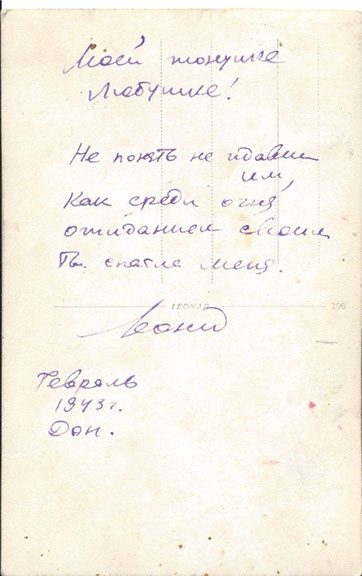 Моей
Любушке!
Не понять не ждавшим
им,
Как среди огня
ожиданием своим
Ты спасла меня.
LEONAR
Леонид
Февраль
1943 г.
Дон.